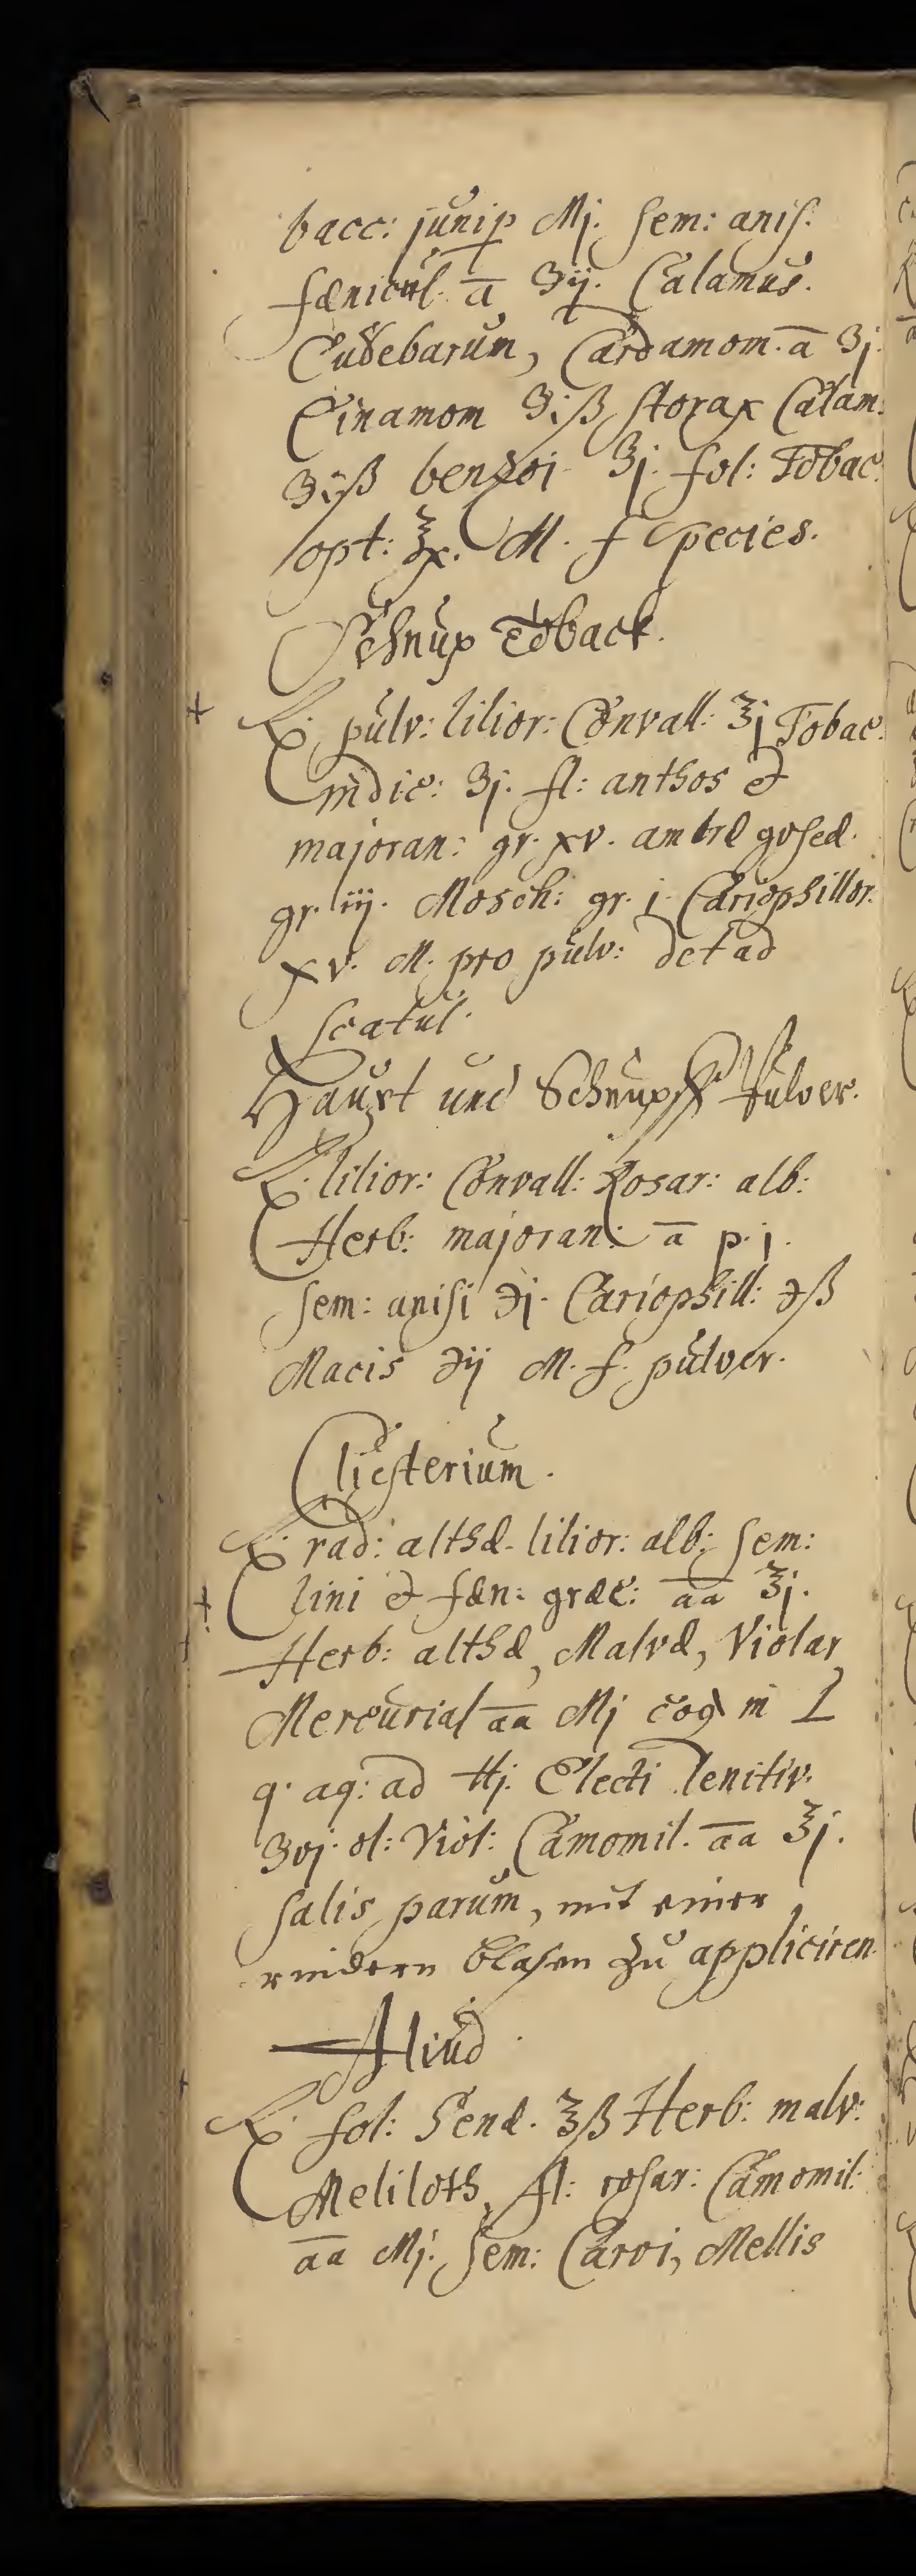 bacc: junip Mj. sem: anis.
fænicul. a ʒij. Calamus.
Cubebarum, Cardamom. a ʒj.
Cinamom ʒiß storax Calam:
ʒiß benzoi ʒj. fol: Tobac.
opt: ℥x. M. f Species.
Schnup Toback.
℞. pulv: lilior: Convall: ℥j Tobac.
indic: ʒj. fl: anthos et
majoran: gr. xv. ambræ
gr. iij. Mosch: gr. j. Cariophillor.
xv. M. pro pulv: det ad
scatul.
Haupt und Schnupff Pulver.
℞. lilior: Convall: Rosar: alb:
Herb: majoran: a p. j.
sem: anisi ℈j. Cariophill: ℈ß
Macis ℈ij M. f. pulver.
Clisterium.
℞. rad: althæ. lilior: alb: sem:
lini et fæn: græc: aa ℥j.
Herb: althæ, Malvæ, Violar
Mercurial aa Mj coq in
q. aq: ad ℔j. Electi lenitiv.
ʒvj. ol: Viol: Camomil. aa ℥j.
salis parum, mit einer
rindern blasen zu appliciren
Aliud.
℞. fol: Senæ. ℥ß Herb: malv:
Meliloth, fl: rosar: Camomil:
aa Mj. sem: Carvi, Mellis